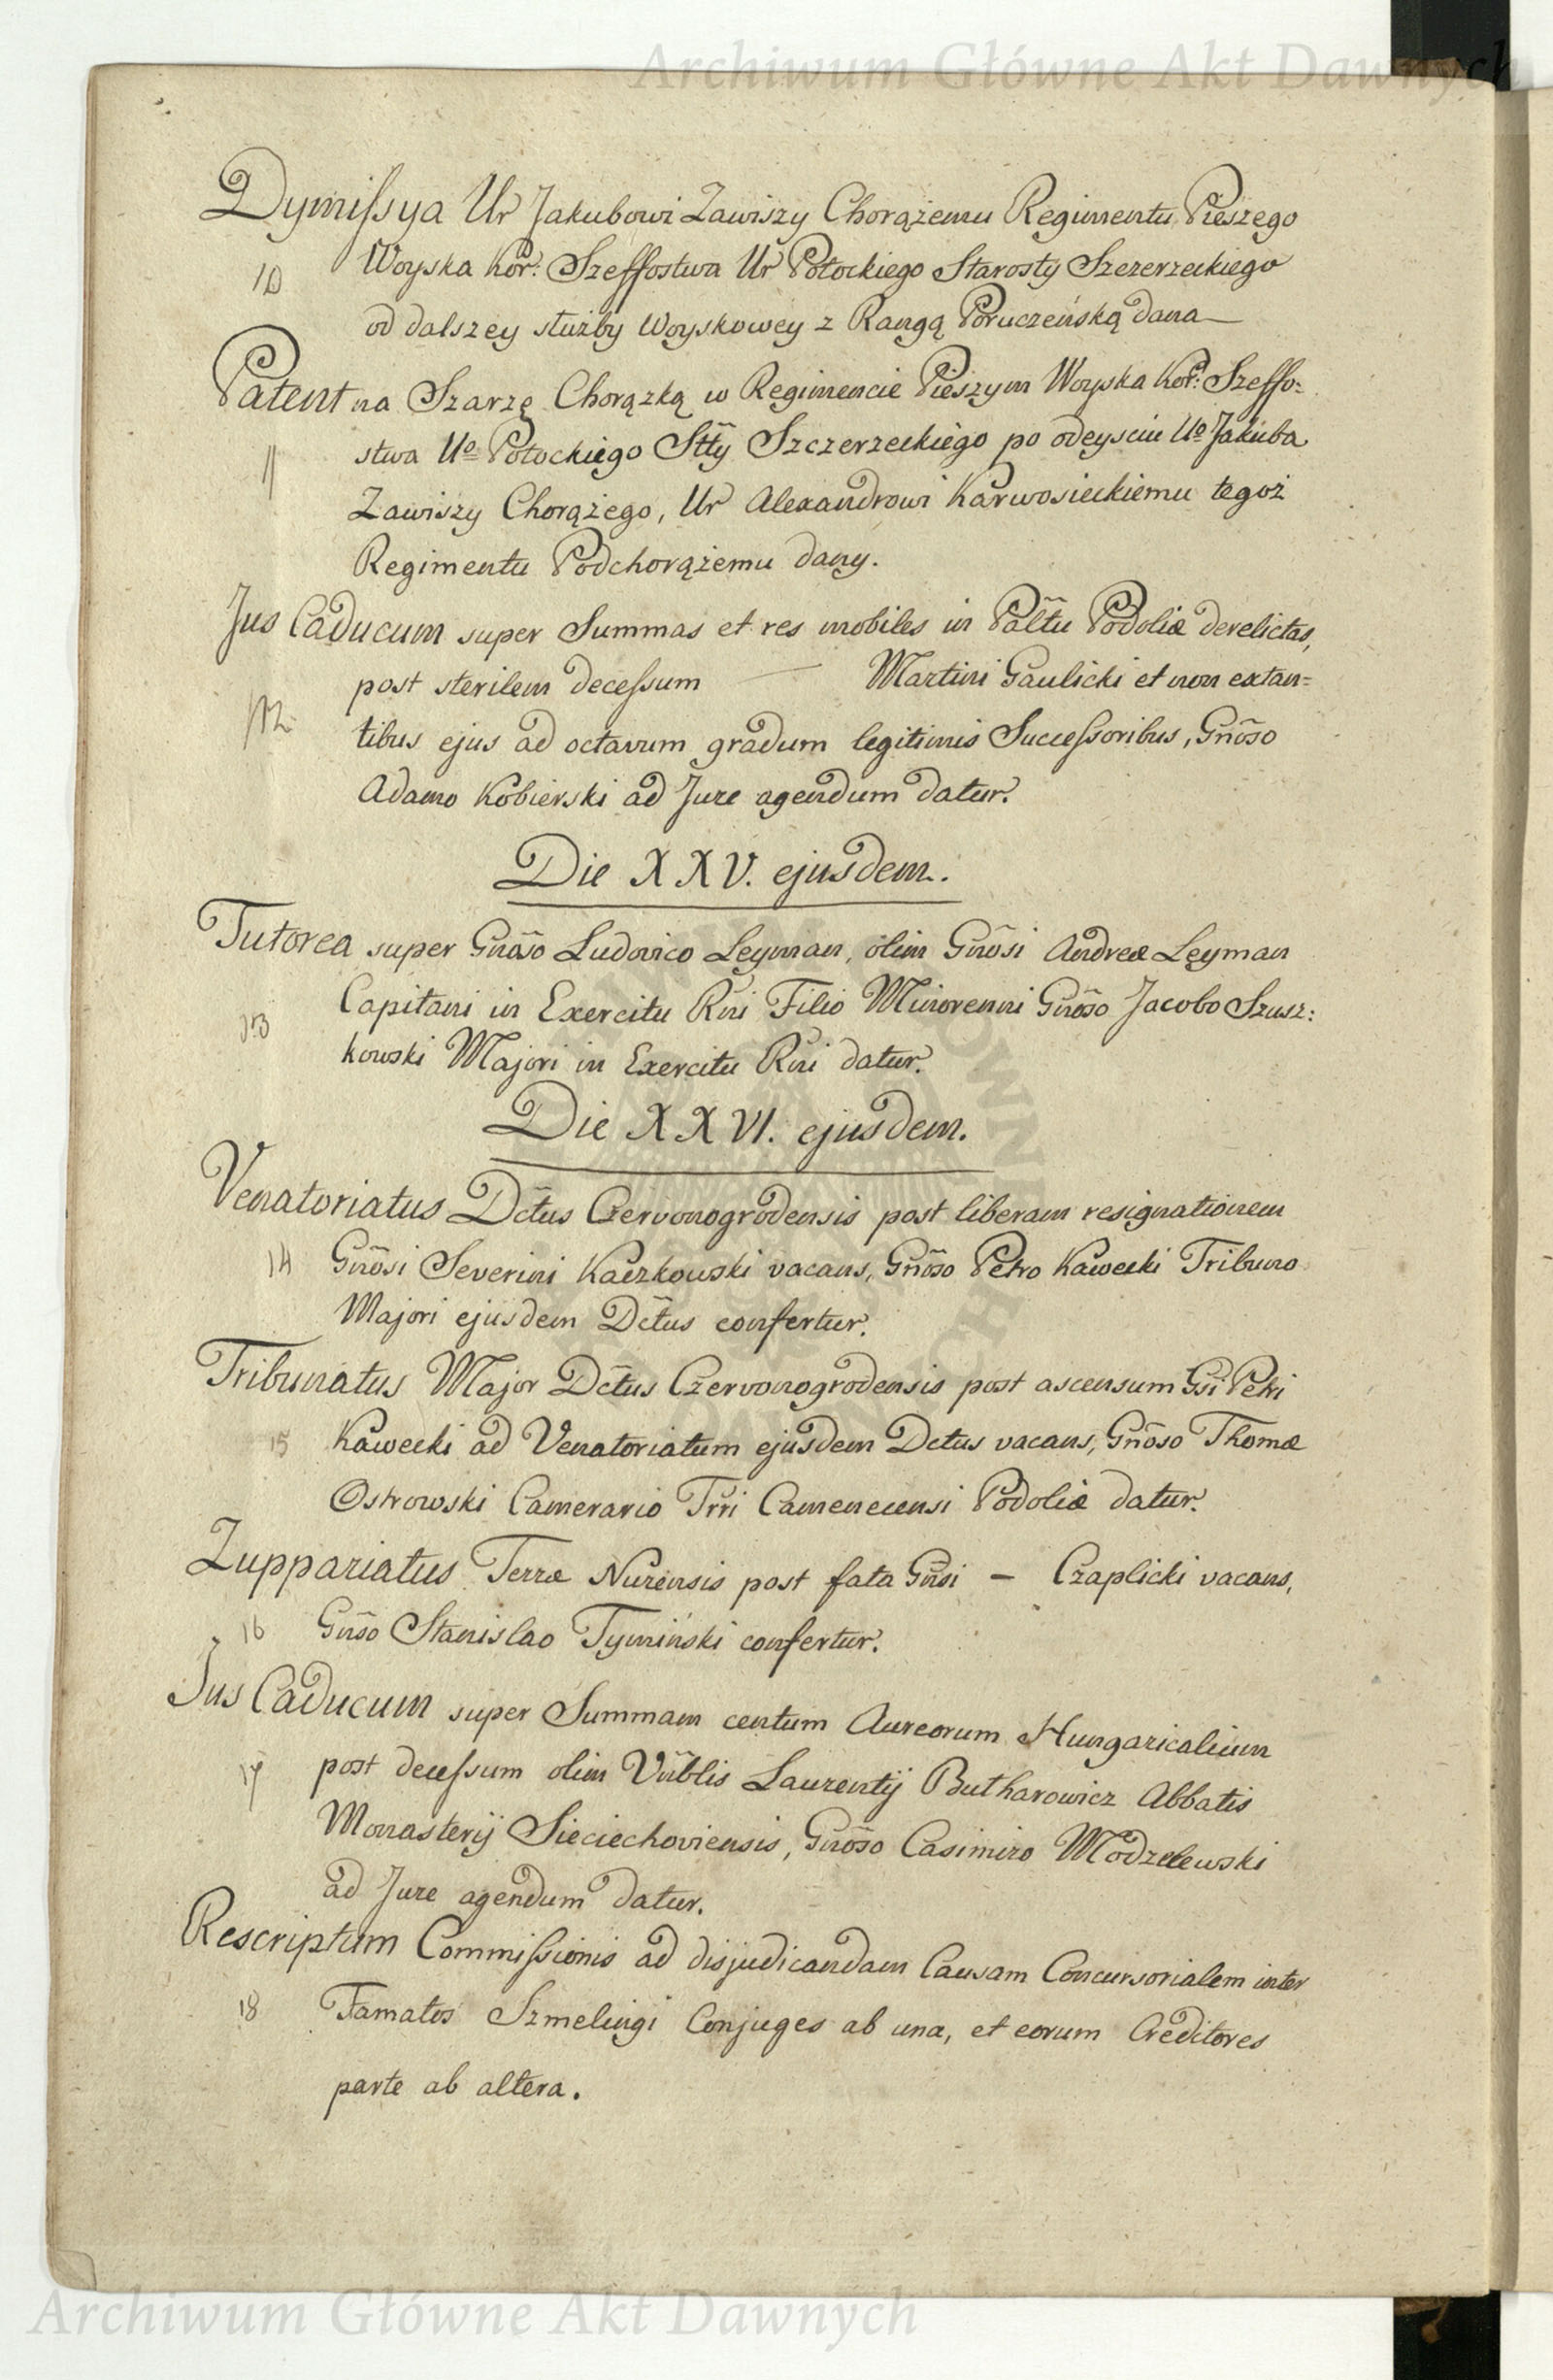 Archiwum Główne Akt Dawnych
Dymissya Ur Jakubowi Zawiszy Chorążemu Regimentu Pieszego
10 Woyska Kor: Szeffostwa Ur Potockiego Starosty Szczerzeckiego
od dalszey służby Woyskowey z Rangą Poruczeńską dana
Patent na Szarzę Chorązką w Regimencie Pieszym Woyska Kor: Szeffo=
11 stwa Uo Potockiego Stty Szczerzeckiego po odeysciu Uo Jakuba
Zawiszy Chorążego, Ur Alexandrowi Karwosieckiemu tegoż
Regimentu Podchorążemu dany.
Jus Caducum super Summas et res mobiles in Palttu Podoliæ derelictas,
post sterilem decessum — Martini Gaulicki et non extan=
12 tibus ejus ad octavum gradum legitimis Successoribus, Gnõso
Adamo Kobierski ad Jure agendum datur.
Die XXV. ejusdem.
Tutorea super Gnõso Ludovico Leyman, olim Gnõsi Andreæ Leyman
13 Capitani in Exercitu Rni Filio Minorenni Gnõso Jacobo Szusz:
kowski Majori in Exercitu Rni datur.
Die XXVI. ejusdem.
Venatoriatus Dctus Czervonogrodensis post liberam resignationem
14 Gnõsi Severini Kaczkowski vacans, Gnõso Petro Kawecki Tribuno
Majori ejusdem Dctus confertur.
Tribunatus Major Dctus Czervonogrodensis post ascensum Gsi Petri
15 Kawecki ad Venatoriatum ejusdem Dctus vacans, Gnõso Thomæ
Ostrowski Camerario Trri Camenecensi Podoliæ datur.
Zuppariatus Terræ Nurensis post fata Gnsi – Czaplicki vacans,
16 Gnõso Stanislao Tymiński confertur.
Jus Caducum super Summam centum Aureorum Hungaricalium
17 post decessum olim Vnblis Laurentij Butharowicz Abbatis
Monasterij Sieciechoviensis, Gnõso Casimiro Modzelewski
ad Jure agendum datur.
Rescriptum Commissionis ad disjudicandam Causam Concursorialem inter
18 Famatos Szmelingi Conjuges ab una, et eorum Creditores
parte ab altera.
Archiwum Główne Akt Dawnych